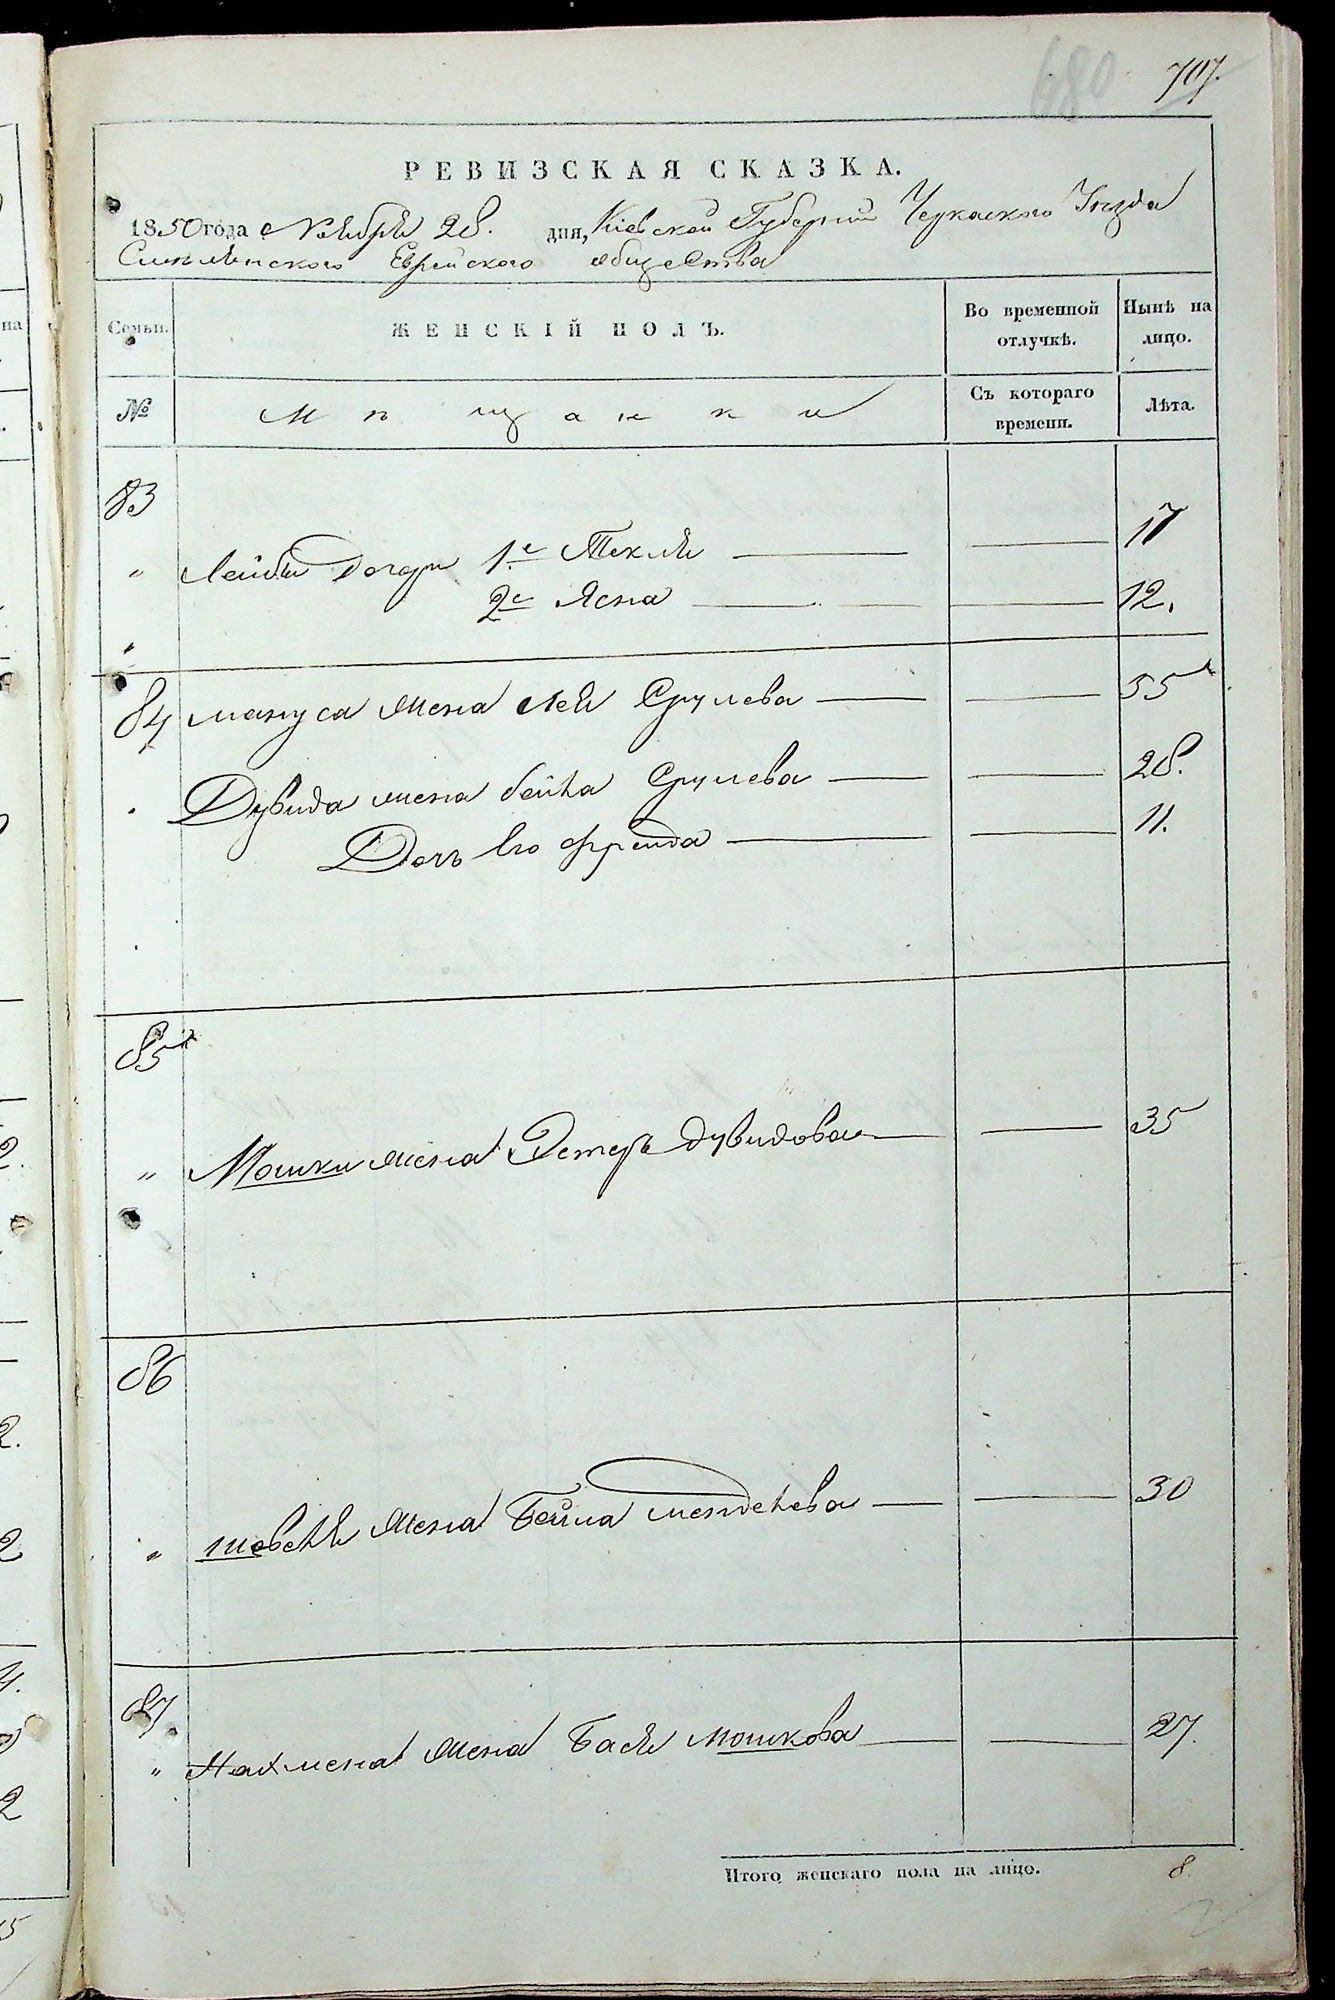 680 707.
РЕВИЗСКАЯ СКАЗКА.
1850 года Ноября 28. дня, Кіевской Губерніи Черкаского Уѣзда
Смилянского Еврейского общества
Семьи. ЖЕНСКІЙ ПОЛЪ. Во временной отлучкѣ. Нынѣ на лицо.
№ Мѣщанки Съ котораго времени. Лѣта.
83
" Лейбы дочери 1.е Текля 17
" 2е Ясна 12.
84 Мануса жена Лея Срулева 55
Дувида жена бейла Срулева 28.
Дочь Его Фрейда 11.
85
" Мошки жена Эстеръ Дувидова 35
86
" жена Бейла 30
87
" Нахмена жена Бася Мошкова 27.
Итого женскаго пола на лицо. 8.